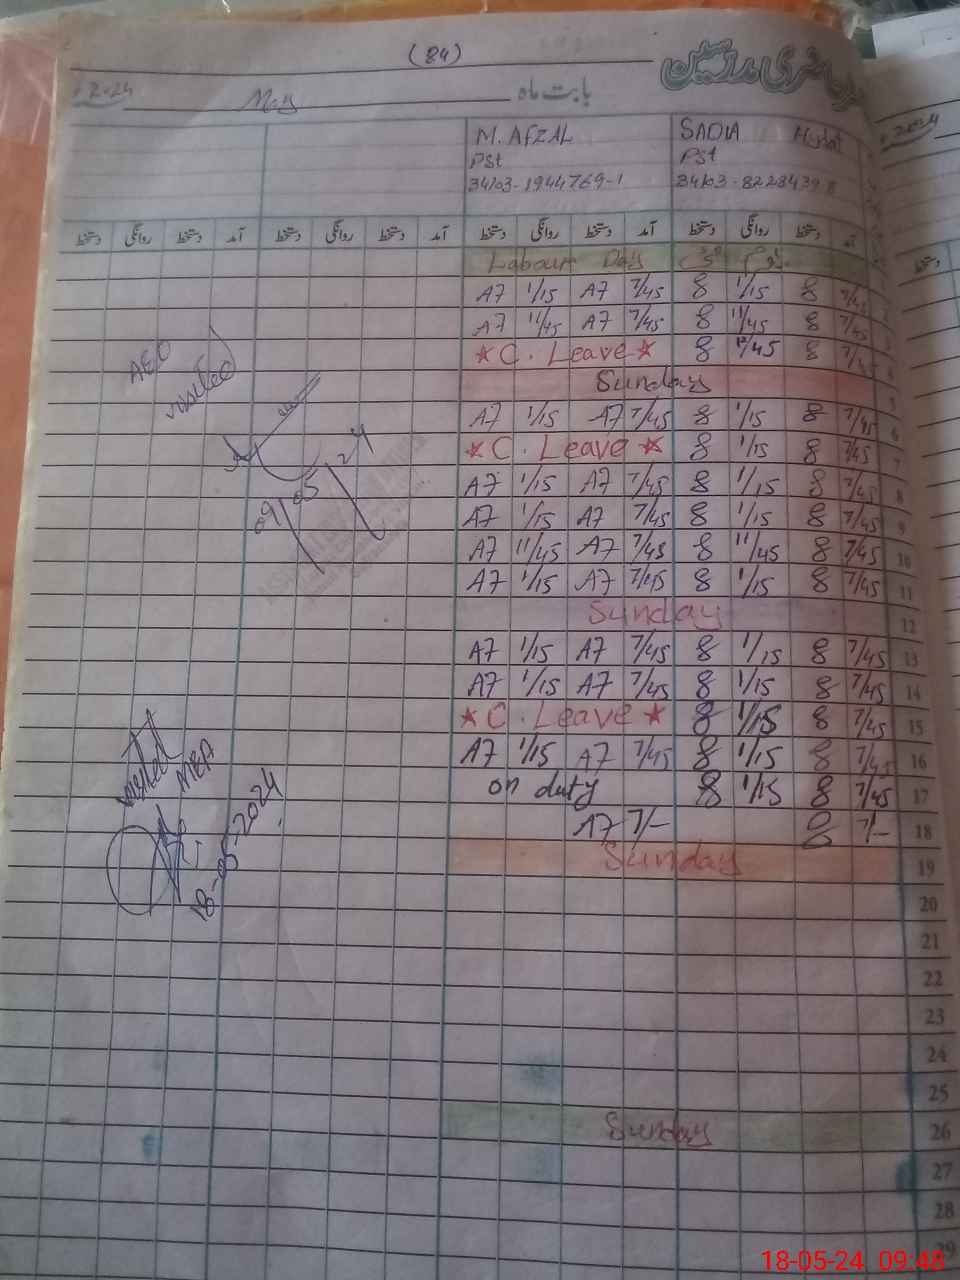 (84)
حاضری مدارسین
2024 May بابت ماہ
M. AFZAL SADIA
PST PST
34103-1944769-1 34103-8228439
دستخط روانگی دستخط آمد دستخط روانگی دستخط آمد دستخط روانگی دستخط آمد دستخط روانگی دستخط آمد
Labour Day
A7 1/15 A7 7/45 8 1/15 8 7/45
A7 11/45 A7 7/45 8 11/45 8 7/45 3
★ C. Leave ★ 8 12/45 8 7/45 4
Sunday 5
A7 1/15 A7 7/45 8 1/15 8 7/45 6
★ C. Leave ★ 8 1/15 8 7/45 7
A7 1/15 A7 7/45 8 1/15 8 7/45 8
A7 1/15 A7 7/45 8 1/15 8 7/45 9
A7 11/45 A7 7/45 8 11/45 8 7/45 10
A7 1/15 A7 7/45 8 1/15 8 7/45 11
Sunday 12
A7 1/15 A7 7/45 8 1/15 8 7/45 13
A7 1/15 A7 7/45 8 1/15 8 7/45 14
★ C. Leave ★ 8 1/15 8 7/45 15
A7 1/15 A7 7/45 8 1/15 8 7/45 16
on duty 8 1/15 8 7/45 17
A7 7/- 8 7/- 18
Sunday 19
20
21
22
23
24
25
Sunday 26
27
28
29
AEO
visited
09/05/24
visited
MEA
18-05-2024
2024
دستخط
18-05-24 09:48